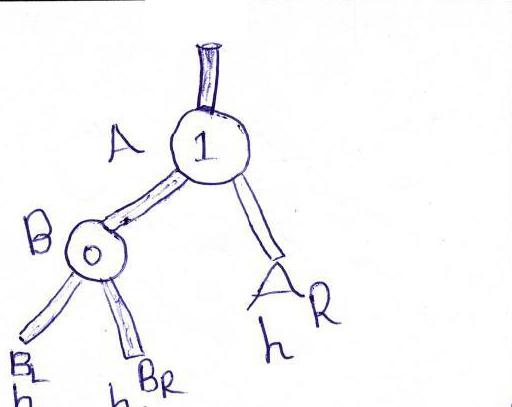 A 1
B 0
A R
h
BL BR
h h